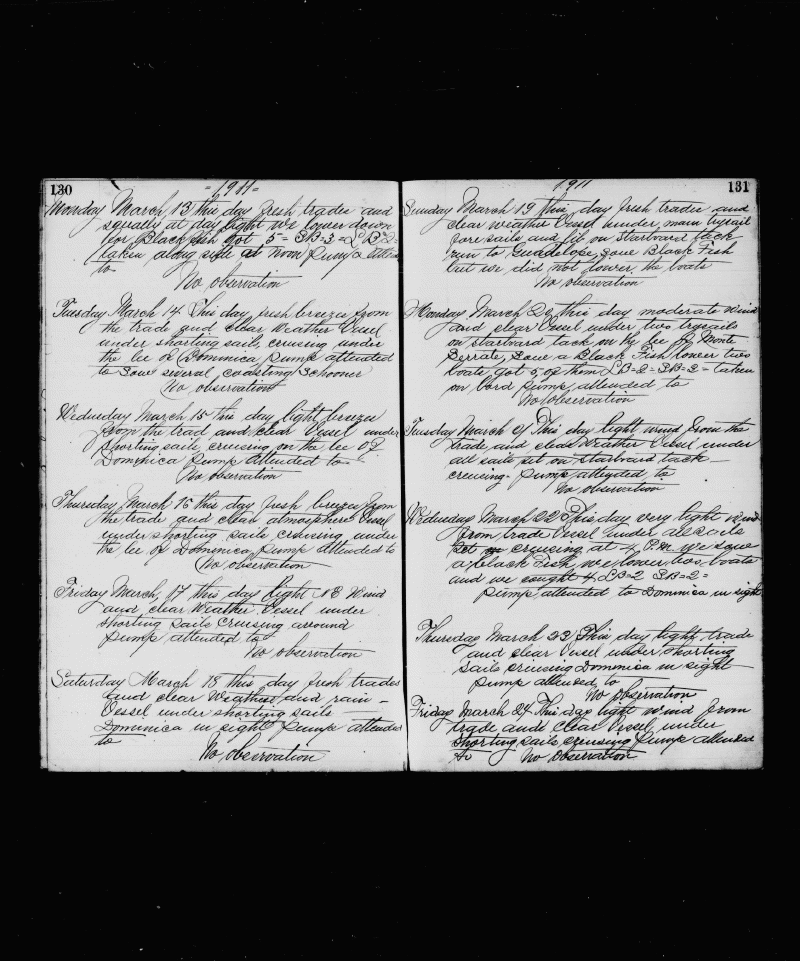 130
-1911-
Monday March, 13 this day fresh trades and
squally at day light we lower down
for Black fish got 5 = SB=3 = LB 2=
taken along side at noon Pump attend
to
No observation
Tuesday March 14. This day, fresh breezes from
the trade and clear Weather Vessel
under shorting sails, cruising under
the lee of Dominica Pump attended
to Saw several coasting Schooner
No observation
Wednesday March 15 this day light breezes
from the trad and clear Vessel under
shorting sails cruising on the lee of
Dominica Pump attended to
No observation
Thursday March 16 this day fresh breezes from
the trade and clear atmosphere Vessel
under shorting sails cruising under
the lee of Dominica, Pump attended to
No observation
Friday March, 17 this day light NE Wind
and clear Weather Vessel under
shorting sails Cruising around
Pump attended to
No observation
Saturday March 18 this day fresh trades
and clear Weather and rain -
Vessel under shorting sails
Dominica in sight Pump attended
to
No observation
131
1911
Sunday March 19 this day fresh trades and
clear weather Vessel under, main trysail
fore sails and jib on Starboard tack
run to Guadelope, Saw Black Fish
but we did not lower, the boats
No observation
Monday March 20 this day moderate wind
and clear Vessel under two trysails
on starboard tack on by lee of Monte
Serrate, Saw a Black Fish lower two
boats got 5 of them LB=2= SB=3 - taken
on bord Pump attended to
No observation
Tuesday March 21 This day light wind from the
trade, and clear Weather Vessel under
all sails set on starboard tack -
cruising. Pump attended to
No observation
Wednesday March 22 This day very light wind
from trade Vessel under all sails
set on cruising at 4 P.M. we saw
a black Fish, we lower, two boats
and we caught 4 LB=2 SB=2=
Pump attended to Dominica in sight
Thursday March 23 This day light, trade
and clear Vessel under shorting
sails cruising Dominica in sight
Pump attended to
No observation
Friday March 24 This day light wind from
trade and clear Vessel under
shorting sails cruising Pump attended
to No observation